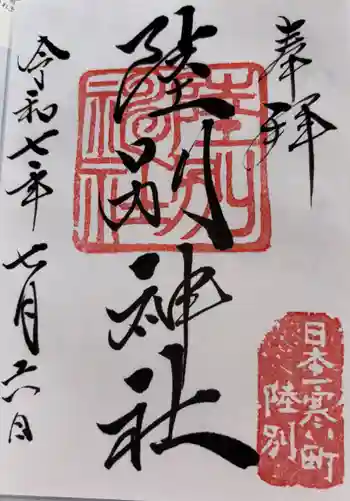 奉拝
陸別神社
令和七年七月六日
陸別神社
日本一寒い町
陸別